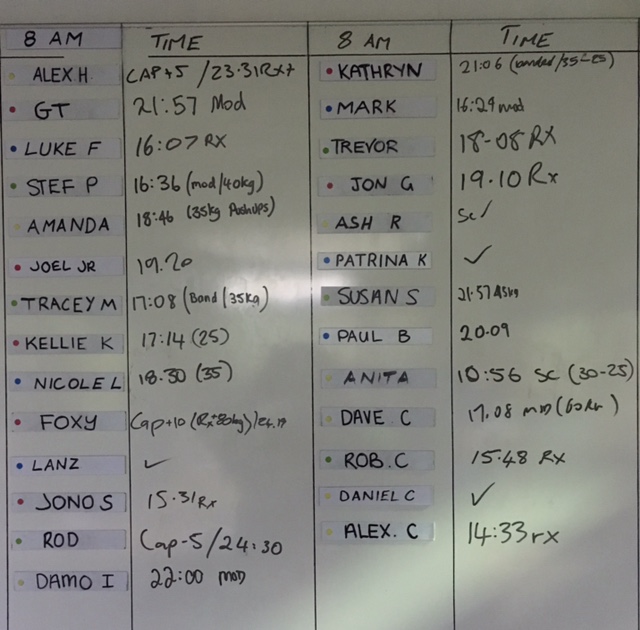 8 AM TIME
ALEX H. CAP+5 / 23.31 RX+
GT 21:57 Mod
LUKE F 16:07 RX
STEF P 16:36 (mod/40kg)
AMANDA 18:46 (35kg PushUps)
JOEL JR 19.20
TRACEY M 17:08 (Band/35kg)
KELLIE K 17:14 (25)
NICOLE L 18.30 (35)
FOXY Cap+10 (Rx+80kg)
LANZ ✓
JONO S 15.31 Rx
ROD Cap-5/24:30
DAMO I 22:00 MOD
8 AM TIME
KATHRYN 21:06 (banded/35-25)
MARK 16:29 mod
TREVOR 18-08 RX
JON G 19.10 Rx
ASH R Sc/
PATRINA K ✓
SUSAN S 21.57
PAUL B 20.09
ANITA 10:56 SC (30-25)
DAVE C 17.08
ROB. C 15.48 RX
DANIEL C ✓
ALEX. C 14:33 rx